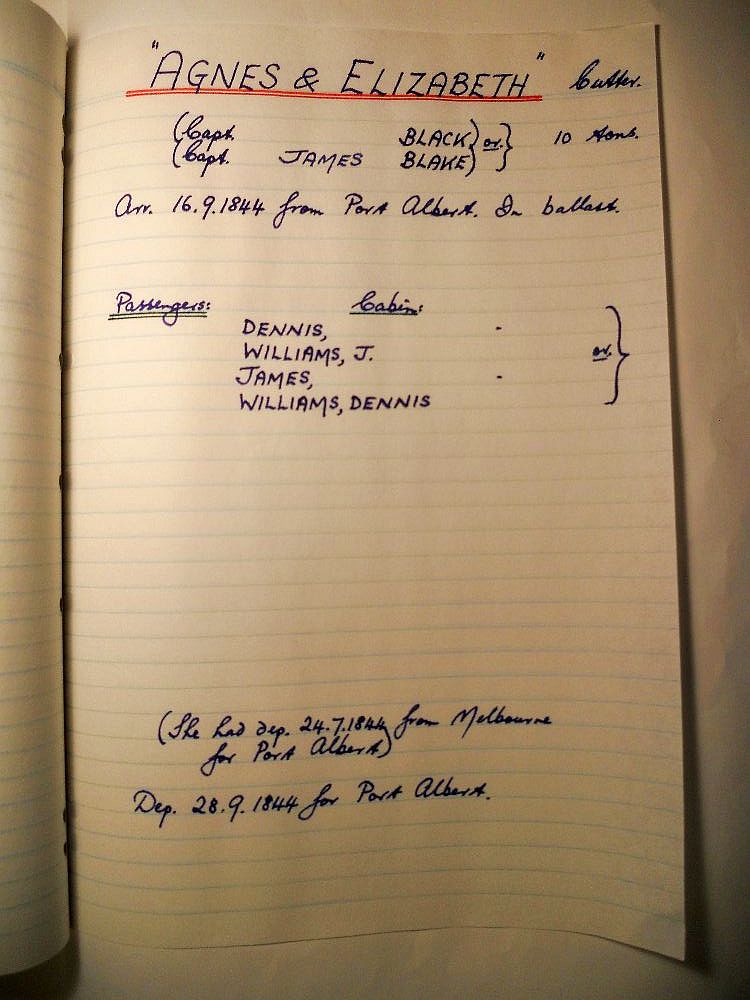 "AGNES & ELIZABETH" Cutter.
(Capt. BLACK) or } 10 tons.
(Capt. JAMES BLAKE)
Arr. 16.9.1844 from Port Albert. In ballast.
Passengers: Cabin:
DENNIS, -
WILLIAMS, J. or }
JAMES, -
WILLIAMS, DENNIS
(She had dep. 24.7.1844 from Melbourne
for Port Albert)
Dep. 28.9.1844 for Port Albert.